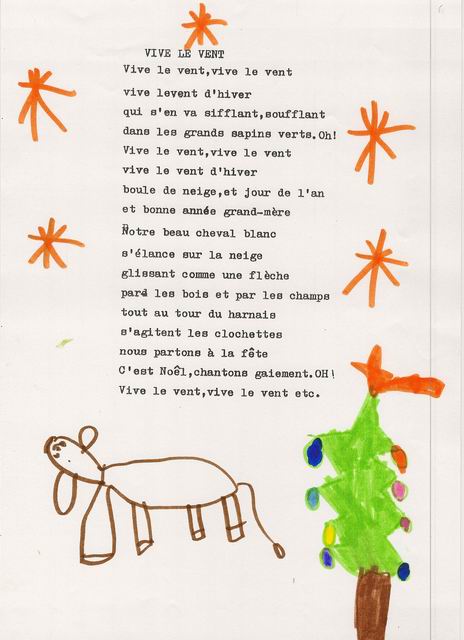 VIVE LE VENT
Vive le vent,vive le vent
vive levent d'hiver
qui s'en va sifflant,soufflant
dans les grands sapins verts.Oh!
Vive le vent,vive le vent
vive le vent d'hiver
boule de neige,et jour de l'an
et bonne année grand-mère
Notre beau cheval blanc
s'élance sur la neige
glissant comme une flèche
pard les bois et par les champs
tout au tour du harnais
s'agitent les clochettes
nous partons à la fête
C'est Noêl,chantons gaiement.OH!
Vive le vent,vive le vent etc.